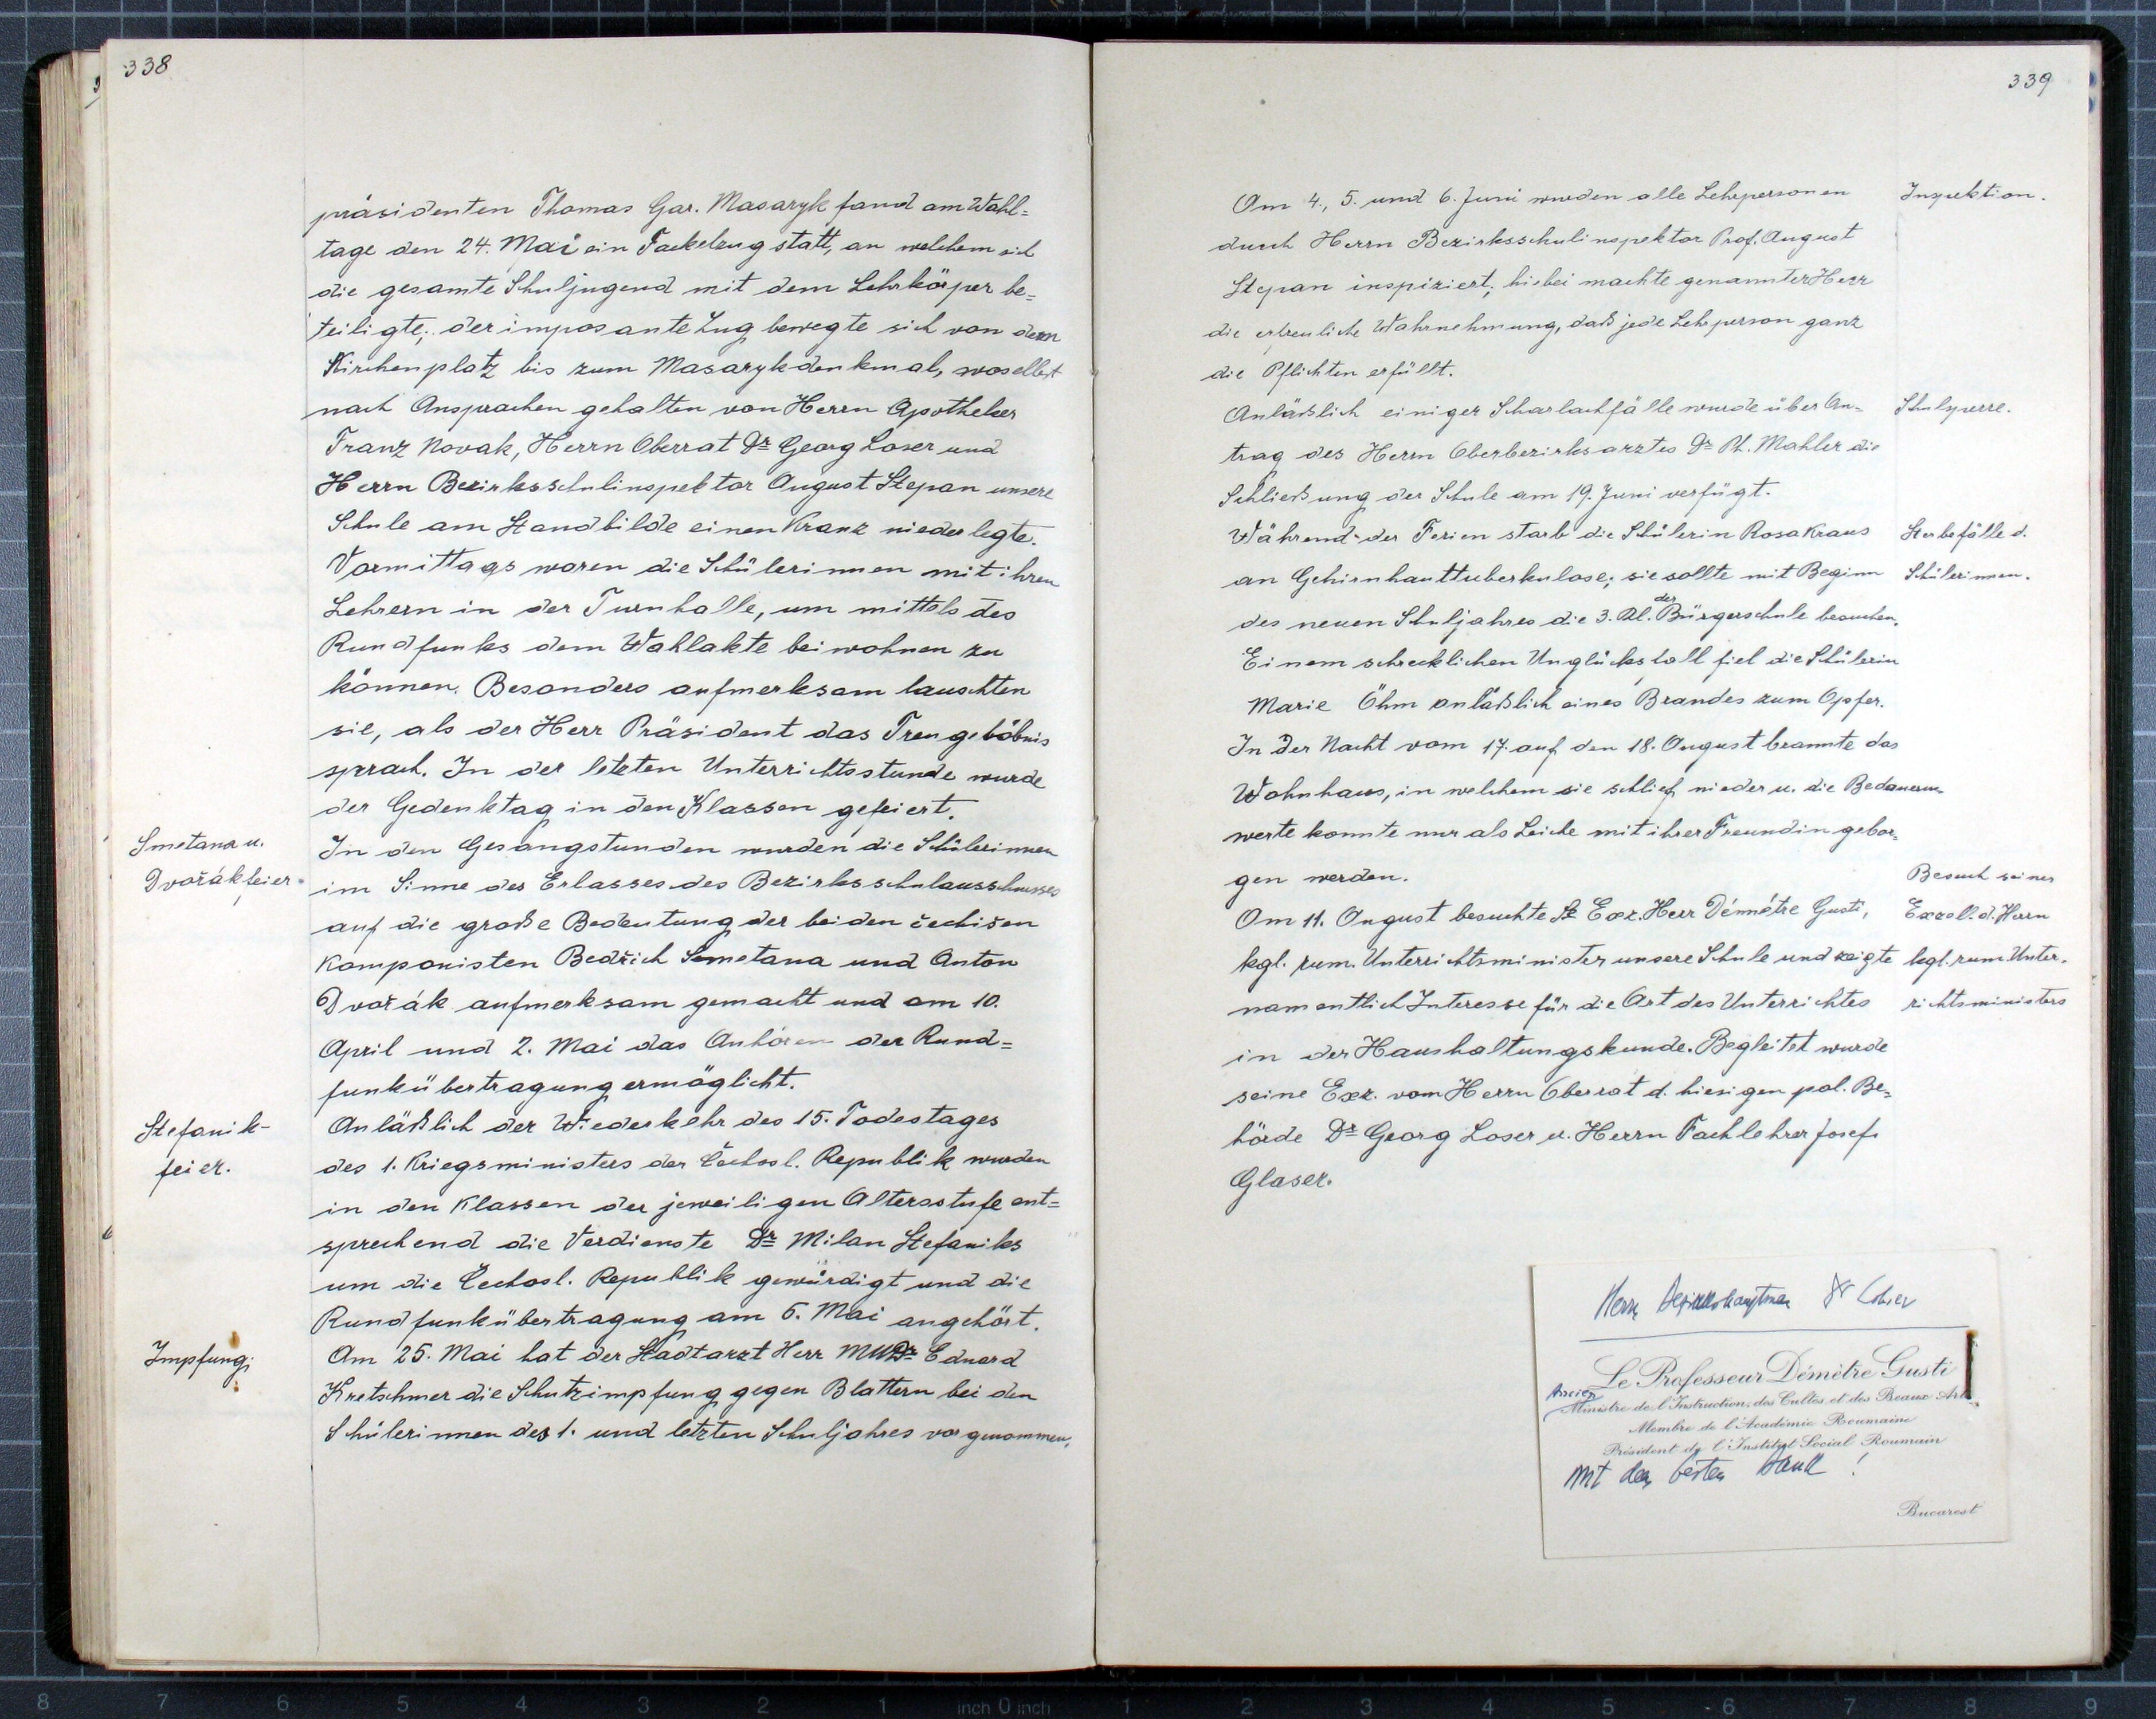 338
präsidenten Thomas Gar. Masaryk fand am Wahl=
tage den 24. Mai ein Fackelzug statt, an welchem sich
die gesamte Schuljugend mit dem Lehrkörper be=
teiligte; der imposante Zug bewegte sich von dem
Kirchenplatz bis zum Masarykdenkmal, woselbst
nach Ansprachen gehalten von Herrn Apotheker
Franz Novak, Herrn Oberrat Dr Georg Loser und
Herrn Bezirksschulinspektor August Stepan unsere
Schule am Standbilde einen Kranz niederlegte.
Vormittags waren die Schülerinnen mit ihren
Lehrern in der Turnhalle, um mittels des
Rundfunks dem Wahlakte beiwohnen zu
können. Besonders aufmerksam lauschten
sie, als der Herr Präsident das Treugelöbnis
sprach. In der letzten Unterrichtsstunde wurde
der Gedenktag in den Klassen gefeiert.
Smetana u.
Dvořákfeier.
In den Gesangstunden wurden die Schülerinnen
im Sinne des Erlasses des Bezirksschulausschusses
auf die große Bedeutung der beiden čechišen
Komponisten Bedřich Smetana und Anton
Dvořák aufmerksam gemacht und am 10.
April und 2. Mai das Anhören der Rund=
funkübertragung ermöglicht.
Stefanik-
feier.
Anläßlich der Wiederkehr des 15. Todestages
des 1. Kriegsministers der Čechosl. Republik wurden
in den Klassen der jeweiligen Altersstufe ent=
sprechend die Verdienste Dr Milan Stefaniks
um die Čechosl. Republik gewürdigt und die
Rundfunkübertragung am 6. Mai angehört.
Impfung.
Am 25. Mai hat der Stadtarzt Herr MUDr Eduard
Kretschmer die Schutzimpfung gegen Blattern bei den
Schülerinnen des 1. und letzten Schuljahres vorgenommen.
339
Am 4., 5. und 6. Juni wurden alle Lehrpersonen
Inspektion.
durch Herrn Bezirksschulinspektor Prof. August
Stepan inspiziert; hiebei machte genannter Herr
die erfreuliche Wahrnehmung, daß jede Lehrperson ganz
die Pflichten erfüllt.
Anläßlich einiger Scharlachfälle wurde über An=
Schulsperre.
trag des Herrn Oberbezirksarztes Dr Ph. Mahler die
Schließung der Schule am 19. Juni verfügt.
Während der Ferien starb die Schülerin Rosa Kraus
Sterbefälle d.
an Gehirnhauttuberkulose; sie sollte mit Beginn
Schülerinnen.
des neuen Schuljahres die 3. Kl. der Bürgerschule besuchen.
Einem schrecklichen Unglücksfall fiel die Schülerin
Marie Öhm anläßlich eines Brandes zum Opfer.
In der Nacht vom 17. auf den 18. August brannte das
Wohnhaus, in welchem sie schlief nieder u. die Bedauerns-
werte konnte nur als Leiche mit ihrer Freundin gebor-
gen werden.
Besuch seiner
Am 11. August besuchte Se Exz. Herr Démètre Gusti,
Exzell. d. Herrn
kgl. rum. Unterrichtsminister unsere Schule und zeigte
kgl. rum. Unter-
namentlich Interesse für die Art des Unterrichtes
richtsministers
in der Haushaltungskunde. Begleitet wurde
seine Exz. vom Herrn Oberrat d. hiesigen pol. Be=
hörde Dr Georg Loser u. Herrn Fachlehrer Josef
Glaser.
Herrn Bezirkshauptman Dr Loser
Le Professeur Démètre Gusti
Ancien
Ministre de l'Instruction, des Cultes et des Beaux Arts
Membre de l'Académie Roumaine
Président de l'Institut Social Roumain
Mit dem besten Dank !
Bucarest
8 7 6 5 4 3 2 1 inch 0 inch 1 2 3 4 5 6 7 8 9